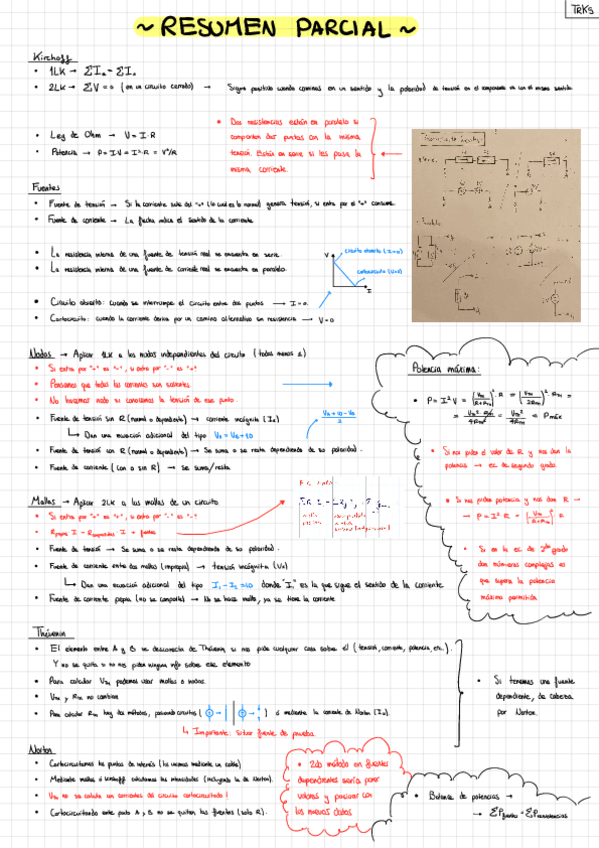 TRKs
~ RESUMEN PARCIAL ~
Kirchoff
• 1LK → ΣIe = ΣIs
• 2LK → ΣV = 0 (en un circuito cerrado) → Signo positivo cuando caminas en un sentido y la polaridad de tensión en el componente va con el mismo sentido
• Dos resistencias están en paralelo si
comparten dos puntos con la misma
tensión. Están en serie si les pasa la
misma corriente.
• Ley de Ohm → V = I·R
• Potencia → P = I·V = I²·R = V²/R
Fuentes
• Fuente de tensión → Si la corriente sale del "+" (lo cual es lo normal) genera tensión, si entra por el "+" consume.
• Fuente de corriente → La flecha indica el sentido de la corriente.
• La resistencia interna de una fuente de tensión real se encuentra en serie.
• La resistencia interna de una fuente de corriente real se encuentra en paralelo.
V
circuito abierto (I=0)
cortocircuito (V=0)
I
• Circuito abierto: cuando se interrumpe el circuito entre dos puntos → I = 0.
• Cortocircuito: cuando la corriente deriva por un camino alternativo sin resistencia → V = 0
Nodos → Aplicar 1LK a los nodos independientes del circuito (todos menos 1)
• Si entra por "+" es "+", si entra por "-" es "-"
• Pensamos que todas las corrientes son salientes.
• No hacemos nodo si conocemos la tensión de ese punto.
• Fuente de tensión sin R (normal o dependiente) → corriente incógnita (Ix)
↳ Dan una ecuación adicional del tipo
• Fuente de tensión con R (normal o dependiente) → Se suma o se resta dependiendo de su polaridad.
• Fuente de corriente (con o sin R) → se suma/resta
Potencia máxima:
• Si nos piden el valor de R y nos dan la
potencia → ec. de segundo grado.
• Si nos piden potencia y nos dan R →
• Si en la ec. de 2do grado
dan números complejos es
que supera la potencia
máxima permitida
Mallas → Aplicar 2LK a las mallas de un circuito
• Si entra por "+" es "+", si entra por "-" es "-"
• Fuente de tensión → Se suma o se resta dependiendo de su polaridad.
• Fuente de corriente entre dos mallas (impropia) → tensión incógnita (Vx)
↳ Dan una ecuación adicional del tipo I₁ - I₂ = 10 donde "I₁" es la que sigue el sentido de la corriente
• Fuente de corriente propia (no se comparte) → No se hace malla, ya se tiene la corriente
Thévenin
• El elemento entre A y B se desconecta de Thévenin si nos pide cualquier cosa sobre él (tensión, corriente, potencia, etc.).
Y no se quita si no nos piden ningún info sobre ese elemento
• Para calcular VTH podemos usar mallas o nodos.
• VTH y RTH no cambian
• Para calcular RTH hay dos métodos, pasivando circuitos ( ) o mediante la corriente de Norton (IN).
↳ Importante: situar fuente de prueba.
• Si tenemos una fuente
dependiente, de cabeza
por Norton.
Norton
• Cortocircuitamos los puntos de interés (los unimos mediante un cable)
• Mediante mallas o Kirchoff calculamos las intensidades (incluyendo la de Norton).
• VTH no se calcula con corrientes del circuito cortocircuitado!
• Cortocircuitando entre ptos A y B no se quitan las fuentes (solo R).
• 2do método en fuentes
dependientes sería poner
valores y pasivar con
los nuevos datos
• Balance de potencias →
→ ΣPfuentes = ΣPresistencias